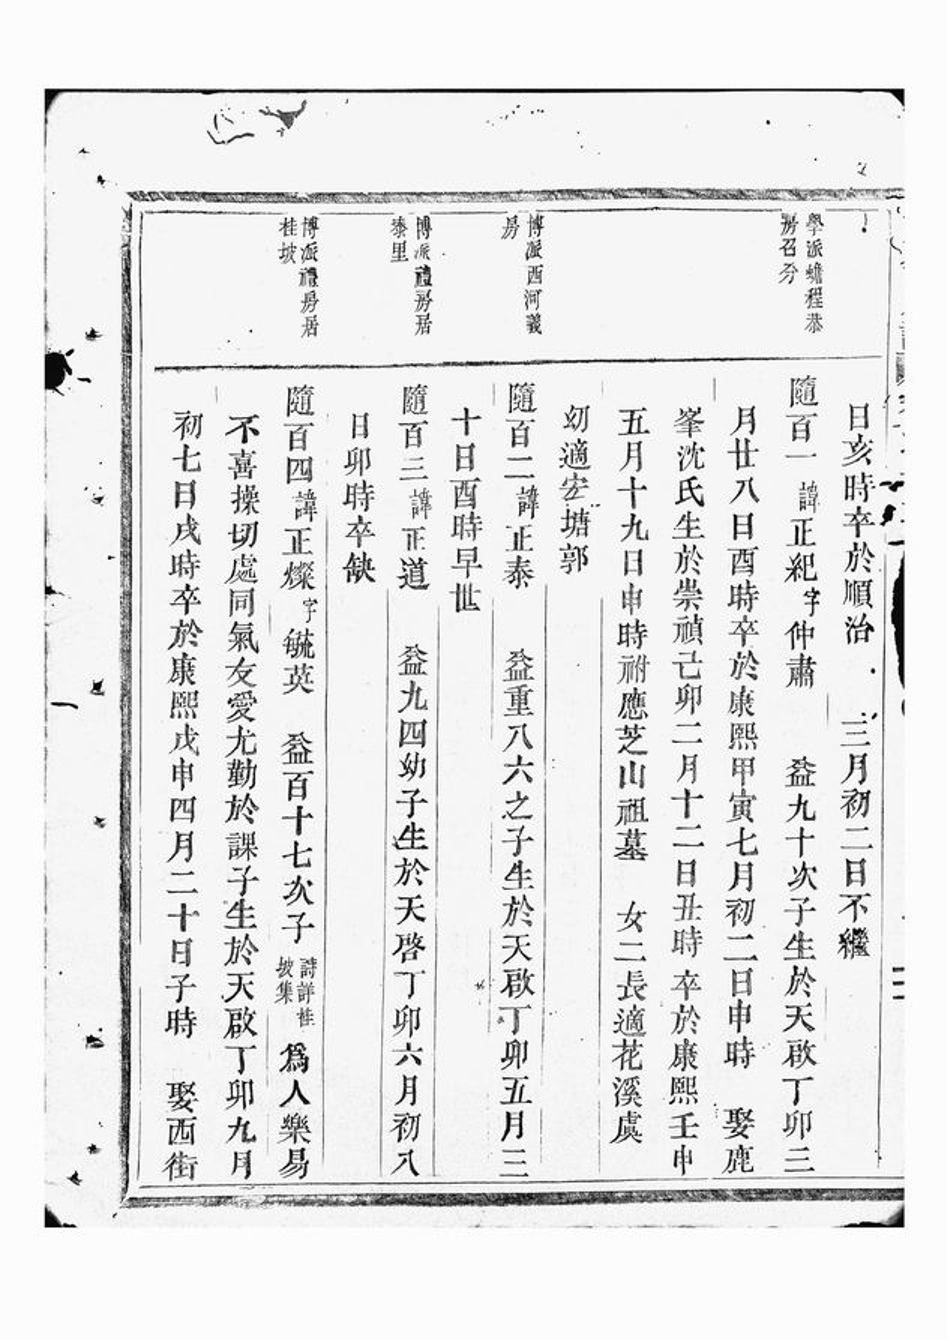 學派蟾程恭
房召分
博派西河義
房
博派禮房居
泰里
博派禮房居
桂坡
日亥時卒於順治　三月初二日不繼
隨百一諱正紀字仲肅　益九十次子生於天啟丁卯三
月廿八日酉時卒於康熙甲寅七月初二日申時　娶鹿
峯沈氏生於崇禎己卯二月十二日丑時卒於康熙壬申
五月十九日申時祔應芝山祖墓　女二長適花溪虞
幼適宏塘郭
隨百二諱正泰　益重八六之子生於天啟丁卯五月三
十日酉時早世
隨百三諱正道　益九四幼子生於天啓丁卯六月初八
日卯時卒缺
隨百四諱正燦字毓英　益百十七次子詩詳桂坡集為人樂易
不喜操切處同氣友愛尤勤於課子生於天啟丁卯九月
初七日戌時卒於康熙戊申四月二十日子時　娶西街